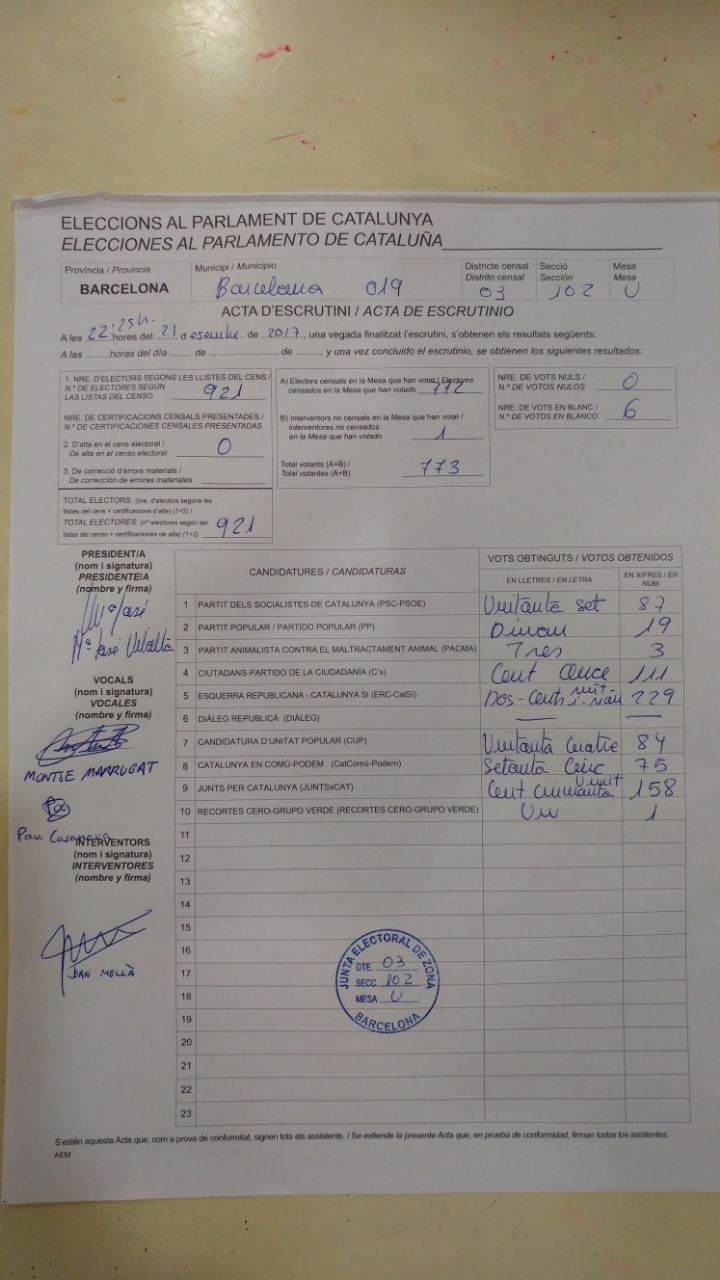 ELECCIONS AL PARLAMENT DE CATALUNYA
ELECCIONES AL PARLAMENTO DE CATALUÑA
Província / Provincia
BARCELONA
Municipi / Municipio
Barcelona 019
Districte censal
Distrito censal
03
Secció
Sección
102
Mesa
Mesa
U
ACTA D'ESCRUTINI / ACTA DE ESCRUTINIO
A les 22'25h. hores del 21 d esembre de 2017, una vegada finalitzat l'escrutini, s'obtenen els resultats següents:
A las ........horas del día ....... de ..................... de ........, y una vez concluido el escrutinio, se obtienen los siguientes resultados:
1. NRE. D'ELECTORS SEGONS LES LLISTES DEL CENS /
N.º DE ELECTORES SEGÚN
LAS LISTAS DEL CENSO 921
NRE. DE CERTIFICACIONS CENSALS PRESENTADES /
N.º DE CERTIFICACIONES CENSALES PRESENTADAS
2. D'alta en el cens electoral /
De alta en el censo electoral: 0
3. De correcció d'errors materials /
De corrección de errores materiales:
TOTAL ELECTORS: (nre. d'electors segons les
llistes del cens + certificacions d'alta) (1+2) /
TOTAL ELECTORES: (nº electores según las
listas del censo + certificaciones de alta) (1+2) 921
A) Electors censats en la Mesa que han votat / Electores
censados en la Mesa que han votado 772
B) Interventors no censats en la Mesa que han votat /
Interventores no censados
en la Mesa que han votado 1
Total votants (A+B) /
Total votantes (A+B) 773
NRE. DE VOTS NULS /
N.º DE VOTOS NULOS 0
NRE. DE VOTS EN BLANC /
N.º DE VOTOS EN BLANCO 6
PRESIDENT/A
(nom i signatura)
PRESIDENTE/A
(nombre y firma)
Mª José
Mª José
VOCALS
(nom i signatura)
VOCALES
(nombre y firma)
MONTSE MARRUGAT
Pau
INTERVENTORS
(nom i signatura)
INTERVENTORES
(nombre y firma)
JOAN MOLLÀ
CANDIDATURES / CANDIDATURAS
VOTS OBTINGUTS / VOTOS OBTENIDOS
EN LLETRES / EN LETRA
EN XIFRES / EN NÚM.
1 PARTIT DELS SOCIALISTES DE CATALUNYA (PSC-PSOE) Vuitanta set 87
2 PARTIT POPULAR / PARTIDO POPULAR (PP) Dinou 19
3 PARTIT ANIMALISTA CONTRA EL MALTRACTAMENT ANIMAL (PACMA) Tres 3
4 CIUTADANS-PARTIDO DE LA CIUDADANÍA (C's) Cent Onze 111
5 ESQUERRA REPUBLICANA - CATALUNYA SI (ERC-CatSí) Dos-Cents vint-i-nou 229
6 DIÀLEG REPUBLICÀ (DIÀLEG) — —
7 CANDIDATURA D'UNITAT POPULAR (CUP) Vuitanta Cuatre 84
8 CATALUNYA EN COMÚ-PODEM (CatComú-Podem) Setanta Cinc 75
9 JUNTS PER CATALUNYA (JUNTSxCAT) Cent cinquanta Vuit 158
10 RECORTES CERO-GRUPO VERDE (RECORTES CERO-GRUPO VERDE) Un 1
11
12
13
14
15
16
17
18
19
20
21
22
23
JUNTA ELECTORAL DE ZONA
DTE. 03
SECC. 102
MESA U
BARCELONA
S'estén aquesta Acta que, com a prova de conformitat, signen tots els assistents. / Se extiende la presente Acta que, en prueba de conformidad, firman todos los asistentes.
AEM